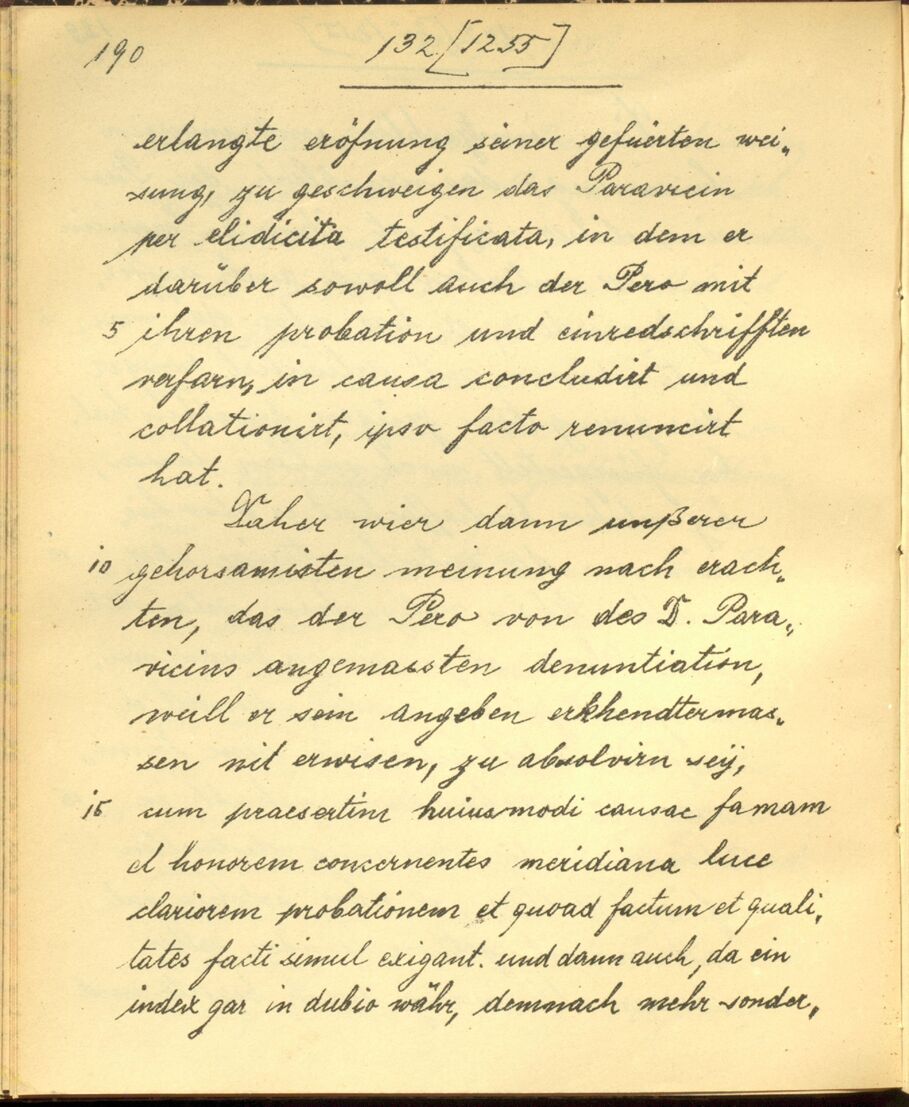 190
132 [1255]
erlangte eröfnung seiner gefüerten wei„
sung, zu geschweigen das Paravicin
per elidicita testificata, in dem er
darüber sowoll auch der Pero mit
5 ihren probation und einredschrifften
verfarn, in causa concludirt und
collationirt, ipso facto renuncirt
hat.
Daher wier dann unßerer
10 gehorsamisten meinung nach erach„
ten, das der Pero von des D. Para„
vicins angemassten denuntiation,
weill er sein angeben erkhendtermas„
sen nit erwisen, zu absolvirn seÿ,
15 cum praesertim huiusmodi causae famam
et honorem concernentes meridiana luce
clariorem probationem et quoad factum et quali„
tates facti simul exigant. und dann auch, da ein
index gar in dubio währ, demnach mehr sonder„